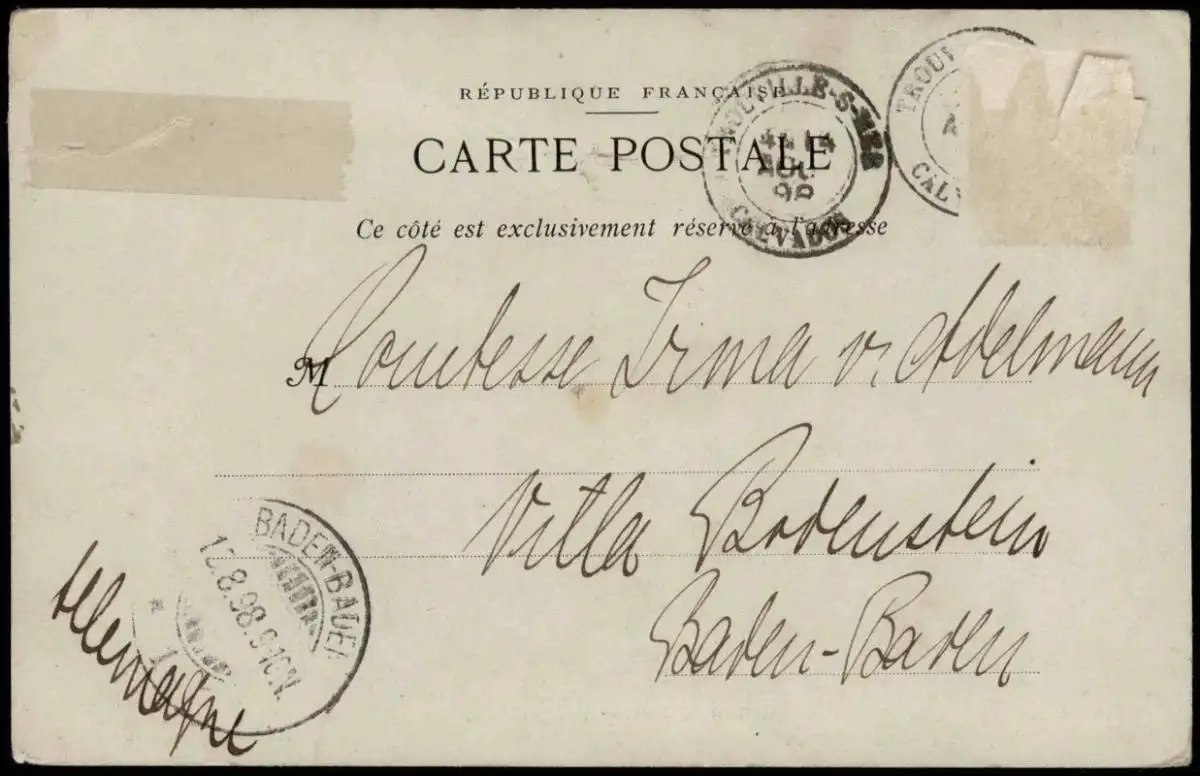 RÉPUBLIQUE FRANÇAISE
CARTE POSTALE
Ce côté est exclusivement réservé à l'adresse
TROUVILLE-S-MER
CALVADOS
TROUV
CAL
M Comtesse Irma v. Adelmann
Villa Bodenstein
Baden-Baden
Allemagne
BADEN-BADEN
12.8.98.9-10N.